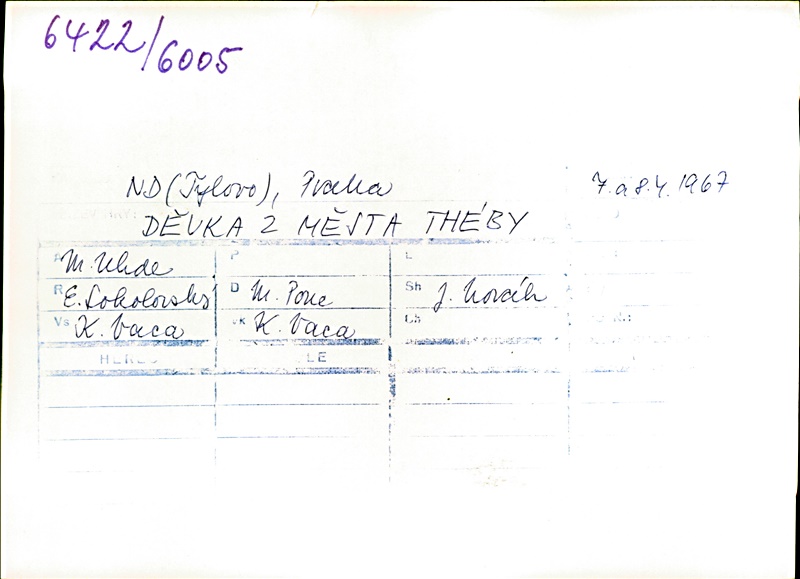 6422/6005
ND (Tylovo), Praha 7. a 8. 4. 1967
DĚVKA Z MĚSTA THÉBY
A M. Uhde P L
R E. Sokolovský D M. Ponc Sh J. Novák
Vs K. Vaca vk K. Vaca Ch
HEREC LE